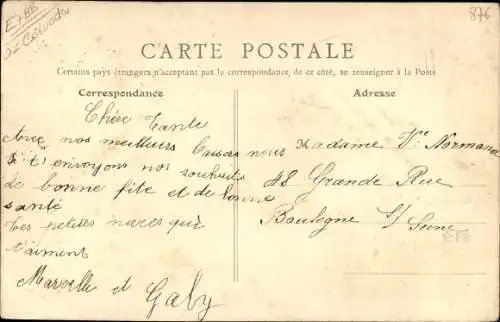 E788
02 Calvados
876
CARTE POSTALE
Certains pays étrangers n'acceptant pas la correspondance de ce côté, se renseigner à la Poste
Correspondance
Adresse
Chère Tante
Avec nos meilleurs baisers nous
t'envoyons nos souhaits
de bonne fête et de bonne
santé
Tes petites nièces qui
t'aiment
Marcelle et Gaby
Madame Vve Normand
48 Grande Rue
Boulogne s/ Seine